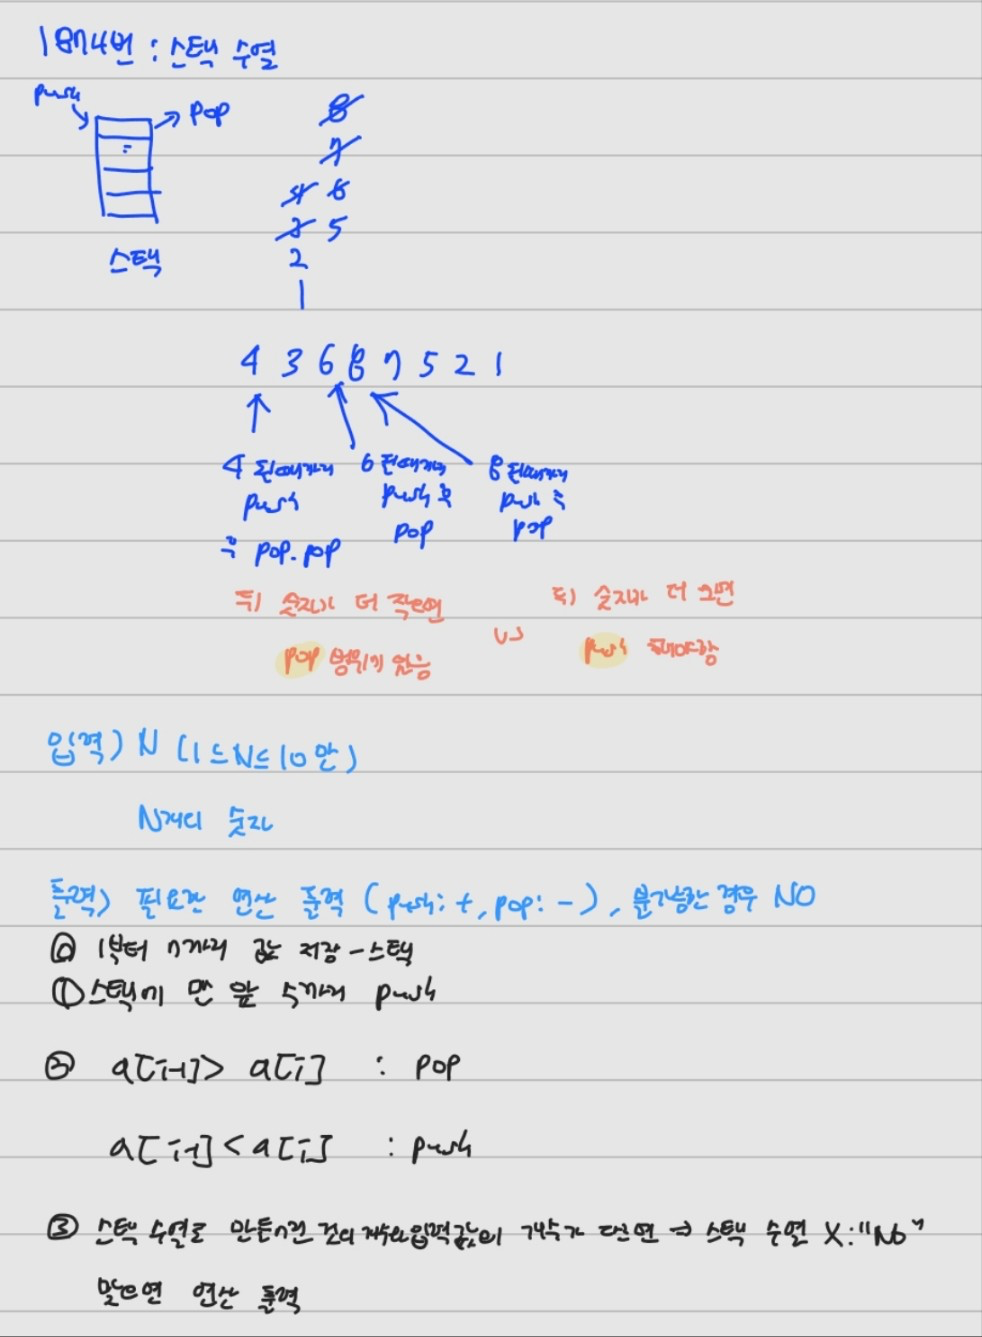 1874번 : 스택 수열
push
pop
8
7
4 6
3 5
2
1
스택
4 3 6 8 7 5 2 1
4 될때까지 6 될때까지 8 될때까지
push push 후 push 후
후 pop. pop pop pop
뒤 숫자가 더 작으면 vs 뒤 숫자가 더 크면
pop 영위기 있음 push 해야함
입력) N (1≤N≤10만)
N개의 숫자
출력) 필요한 연산 출력 (push: +, pop: -), 불가능한 경우 NO
⓪ 1부터 n까지 값 저장 - 스택
① 스택에 맨 앞 수까지 push
② a[i-1] > a[i] : pop
a[i-1] < a[i] : push
③ 스택 수열로 만든 건의 개수와 입력값의 개수가 다르면 ⇒ 스택 수열 X: "No"
맞으면 연산 출력